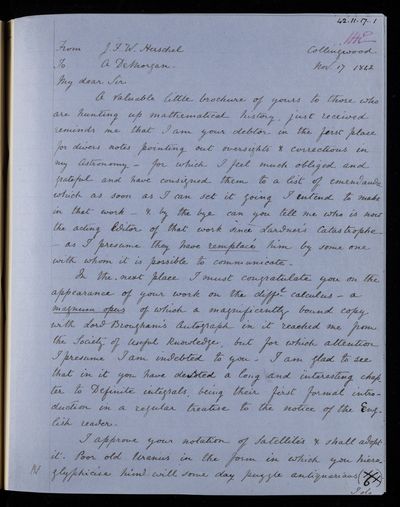 42.11.17.1
From J. F. W. Herschel Collingwood
To A DeMorgan. Nov 17 1842
My dear Sir
A valuable little brochure of yours to those who
are hunting up mathematical history just received
reminds me that I am your debtor in the first place
for divers notes pointing out oversights & corrections in
my Astronomy – for which I feel much obliged and
grateful and have consigned them to a list of emendanda
which as soon as I can set it going I intend to make
in that work – & by the bye can you tell me who is now
the acting Editor of that work since Lardner's Catastrophe –
– as I presume they have remplacé him by some one
with whom it is possible to communicate. –
In the next place I must congratulate you on the
appearance of your work on the diffl calculus – a
magnum opus of which a magnificently bound copy
with Lord Brougham's Autograph in it reached me from
the Society of Useful Knowledge, but for which attention
I presume I am indebted to you – I am glad to see
that in it you have devoted a long and interesting chap
ter to Definite integrals, being their first formal intro-
duction in a regular treatise to the notice of the Eng-
lish reader.
I approve your notation of Satellites & shall adopt
it. Poor old Uranus in the form in which you hiero
glyphicise him will some day puzzle antiquarians
I do